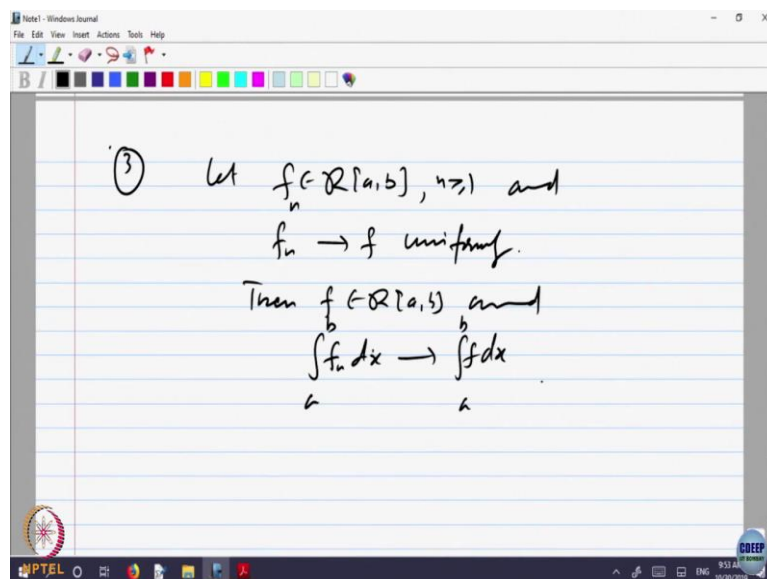 Note1 - Windows Journal
File Edit View Insert Actions Tools Help
B I
③ Let fₙ ∈ R[a,b], n≥1 and
fₙ → f uniformly.
Then f ∈ R[a,b] and
∫ₐᵇ fₙ dx → ∫ₐᵇ f dx
NPTEL
CDEEP
IIT BOMBAY
ENG
9:53 AM
10/20/2019